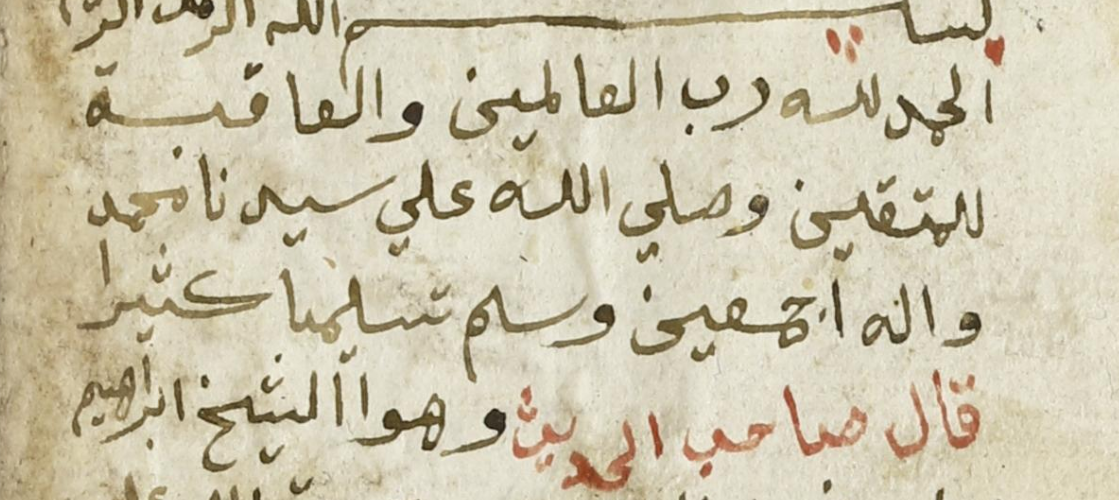 بسم الله الرحمن الرحيم
الحمد لله رب العالمين والعاقبة
للمتقين وصلي الله علي سيدنا محمد
واله اجمعين وسلم تسليما كثيرا
قال صاحب الحديث وهوا الشيخ ابراهيم